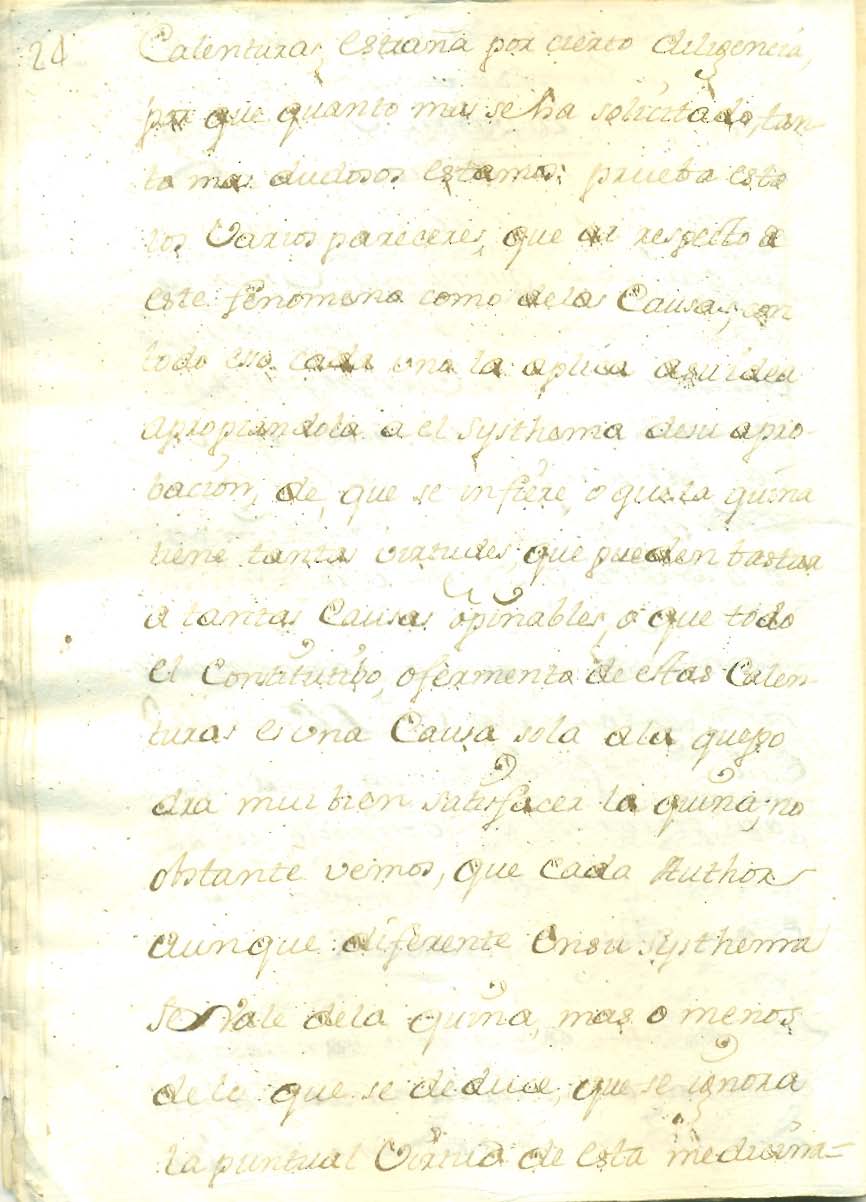 24
Calenturas, estraña por cierto diligencia,
por que quanto mas se ha solicitado, tan-
to mas dudosos estamos: prueba esto
los Varios pareceres, que ai respecto a
este fenomeno como de las Causas, con
todo eso cada uno la aplica a su idea
apropiandola a el Systhema de su apro-
bacion, de que se infiere, o que la quina
tiene tantas virtudes, que pueden bastar
a tantas Causas opinables, o que todo
el Constitutibo, o fermento de estas Calen-
turas es una Causa sola a la que po
dra mui bien satisfacer la quina; no
obstante vemos, que cada Author
aunque diferente en su systhema
se vale de la quina, mas o menos
de lo que se deduce, que se ignora
la puntual Virtud de esta medicina=